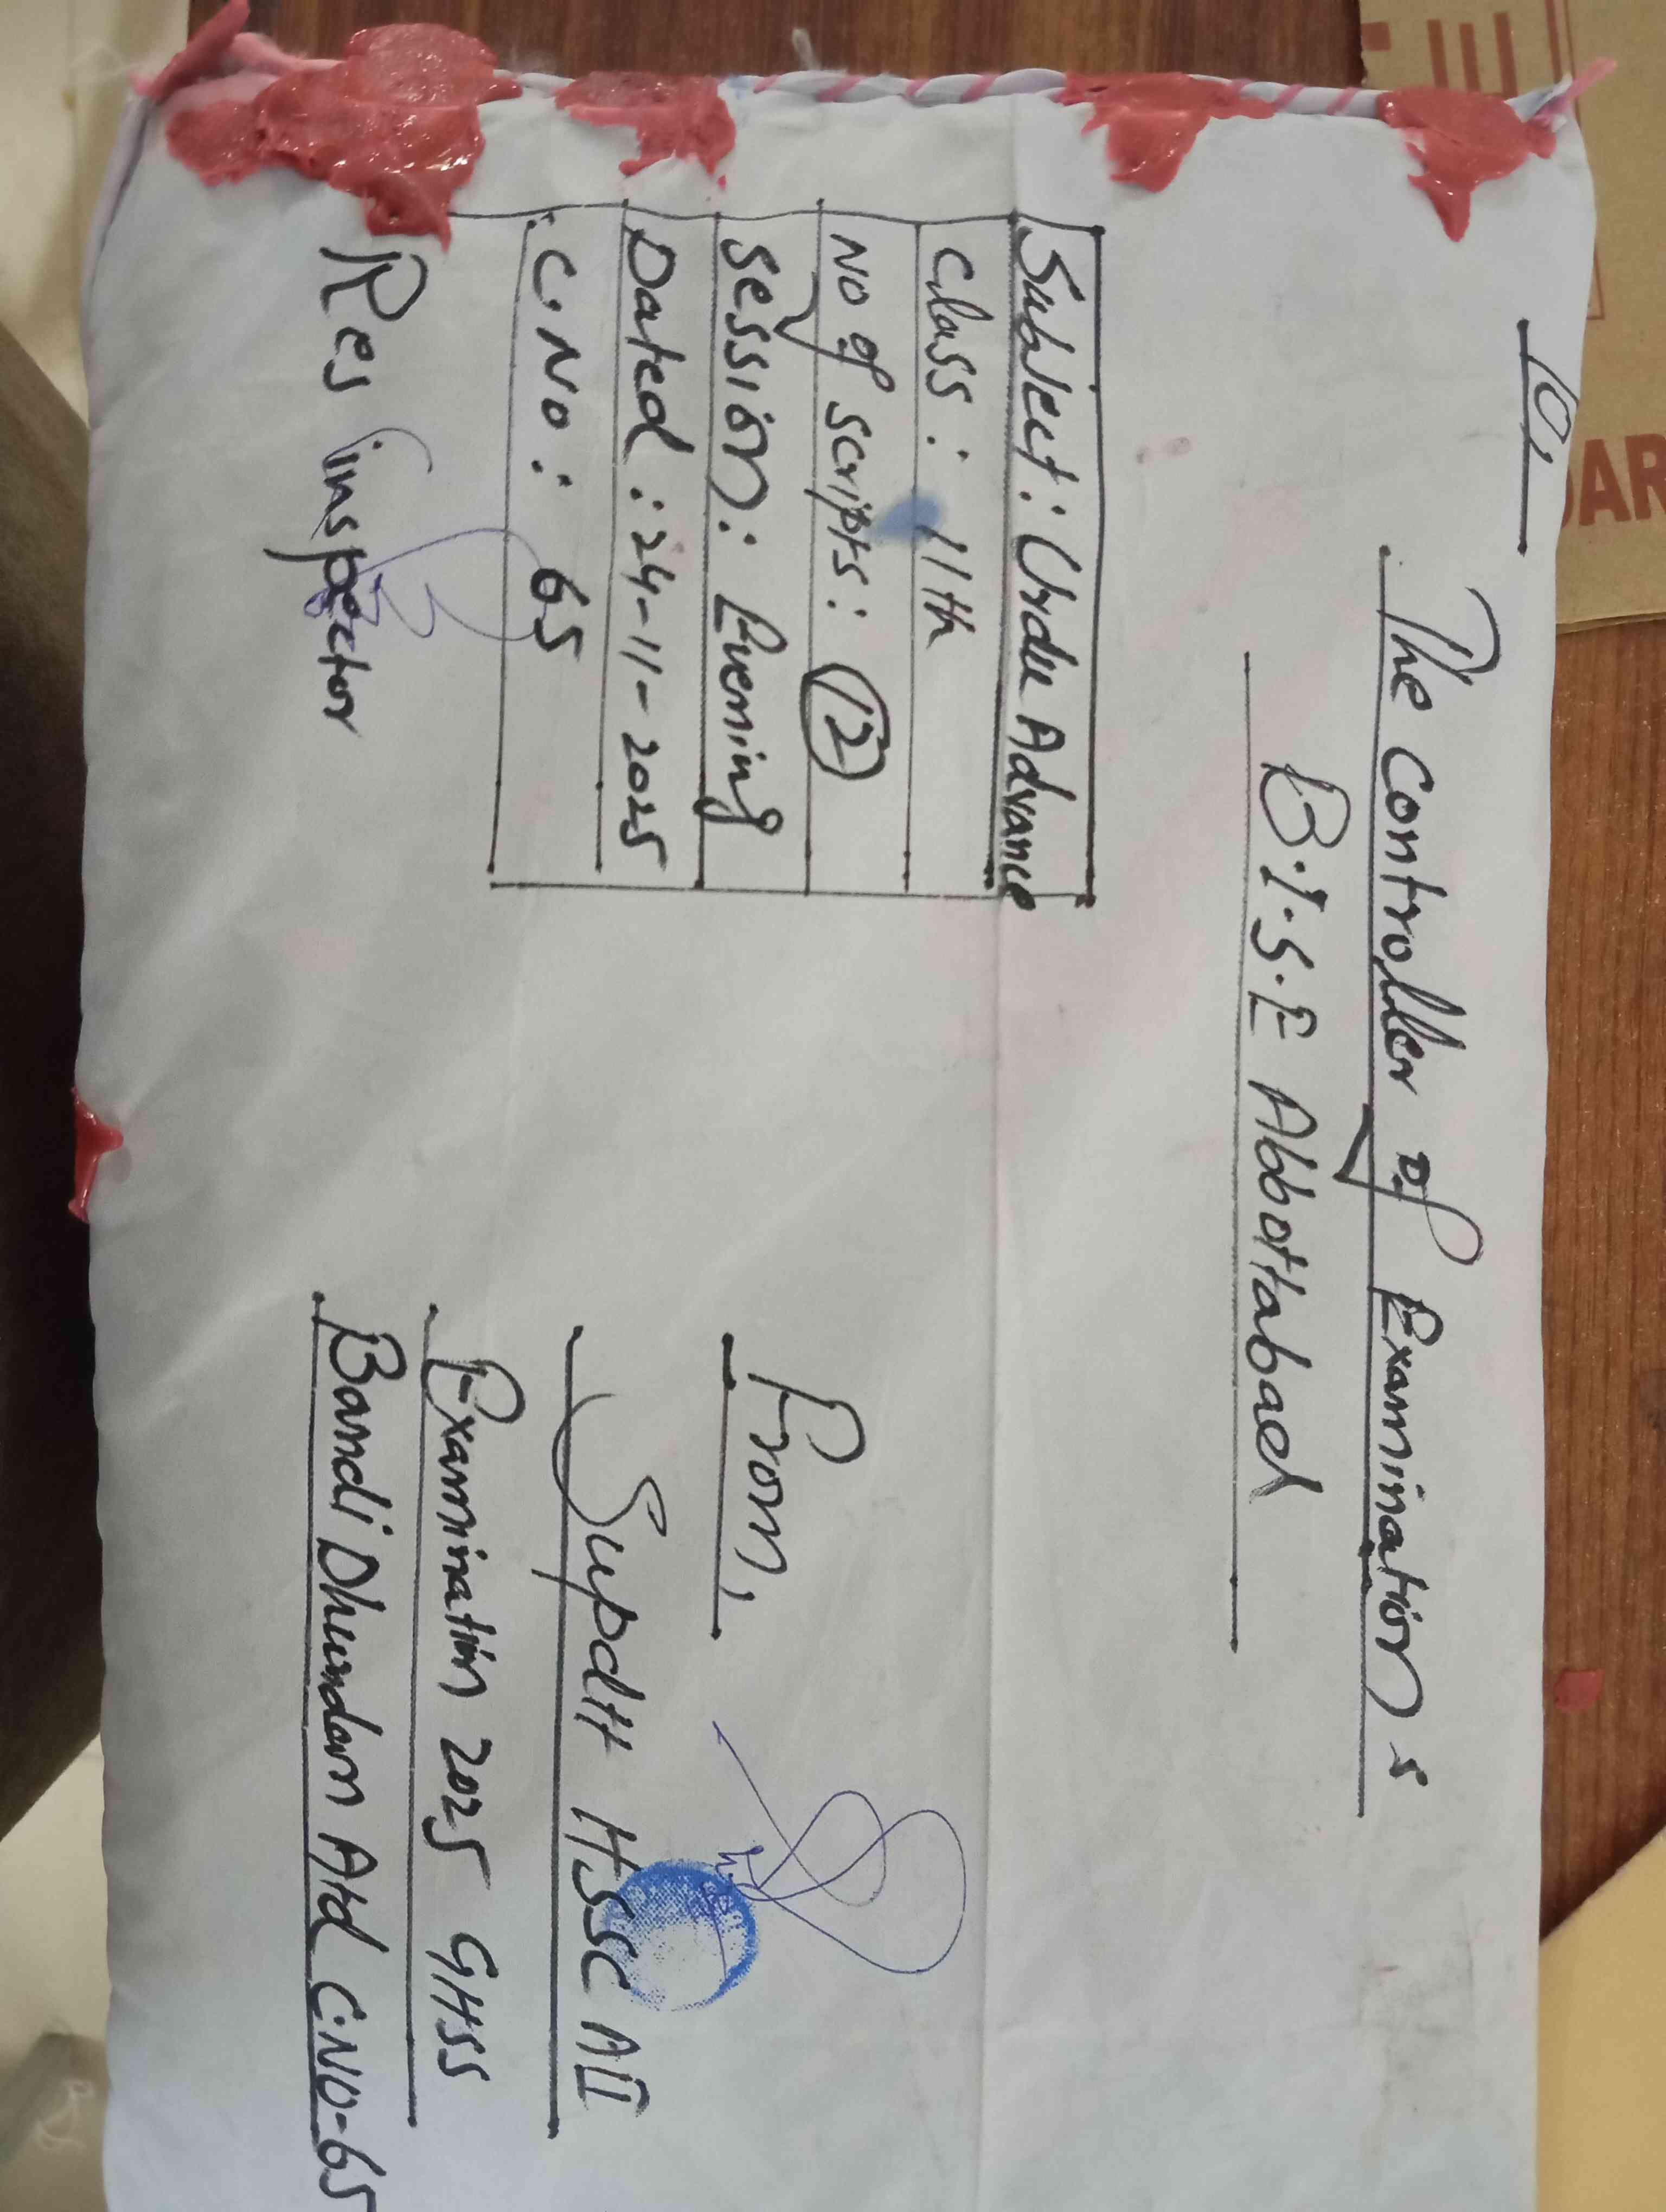 To,
The Controller of Examinations
B.I.S.E Abbottabad
Subject: Urdu Advance
Class: 11th
No of scripts: 12
Session: Evening
Dated: 24-11-2025
C.No: 65
Res inspector
From,
Supdtt HSSC AII
Examination 2025 GHSS
Bandi Dhundan Atd C.NO-65
DAR